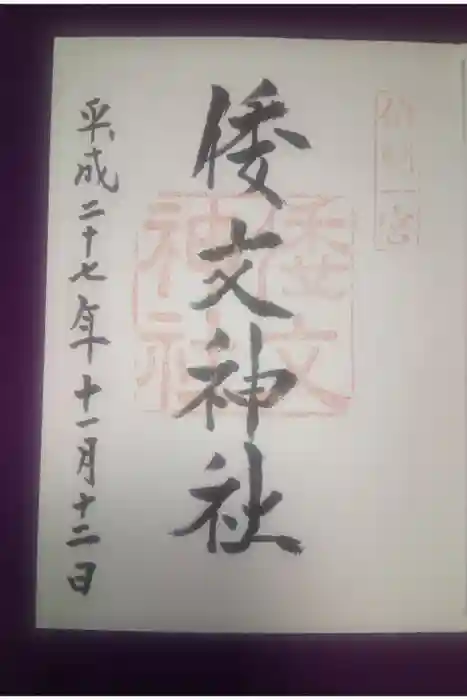 伯耆一宮
倭文神社
倭文神社
平成二十七年十一月十二日